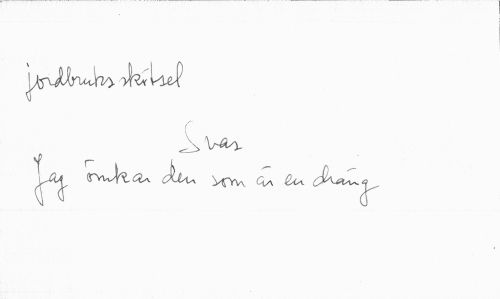 jordbruksskötsel
Svar
Jag ömkar den som är en dräng